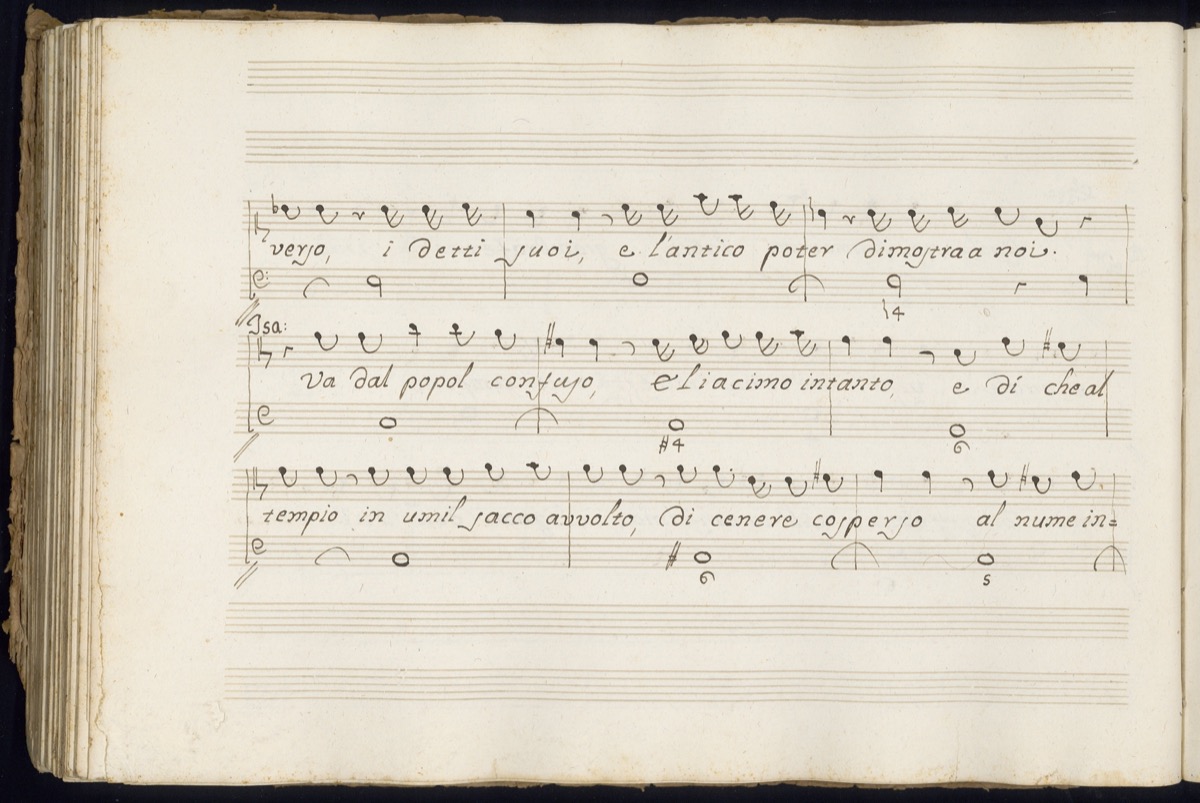 verso, i detti suoi, e l'antico poter dimostra a noi.
♮4
Isa:
va dal popol confuso, Eliacimo intanto, e dí che al
#4 6
tempio in umil sacco avvolto, di cenere cosperso al nume in=
6 5